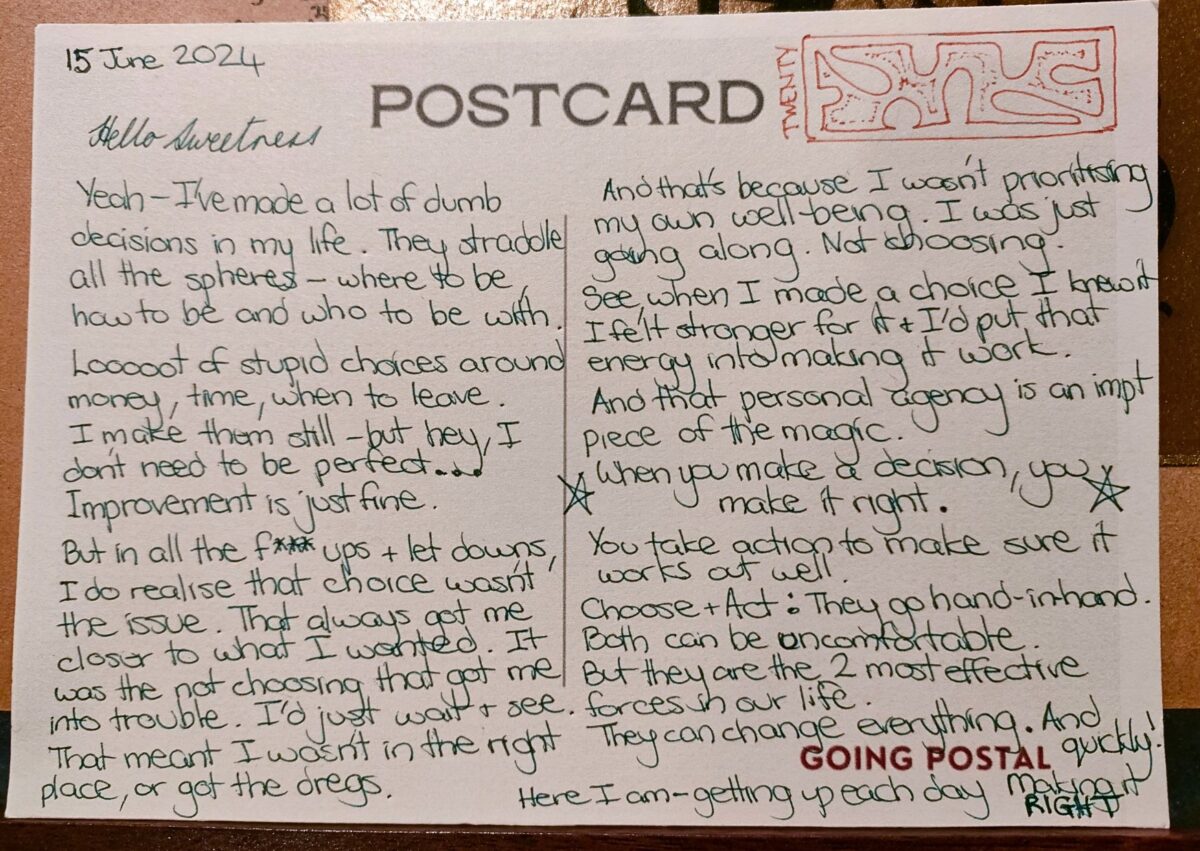 15 June 2024
POSTCARD
TWENTY
ONE
Hello Sweetness
Yeah - I've made a lot of dumb
decisions in my life. They straddle
all the spheres - where to be,
how to be and who to be with.
Looooot of stupid choices around
money, time, when to leave.
I make them still - but hey, I
don't need to be perfect....
Improvement is just fine.
But in all the f*** ups + let downs,
I do realise that choice wasn't
the issue. That always got me
closer to what I wanted. It
was the not choosing that got me
into trouble. I'd just wait + see.
That meant I wasn't in the right
place, or got the dregs.
And that's because I wasn't prioritising
my own well-being. I was just
going along. Not choosing.
See, when I made a choice I knew it
I felt stronger for it + I'd put that
energy into making it work.
And that personal agency is an impt
piece of the magic.
When you make a decision, you
make it right.
You take action to make sure it
works out well.
Choose + Act : They go hand-in-hand.
Both can be uncomfortable.
But they are the 2 most effective
forces in our life.
They can change everything. And
quickly!
GOING POSTAL
Here I am - getting up each day making it
RIGHT